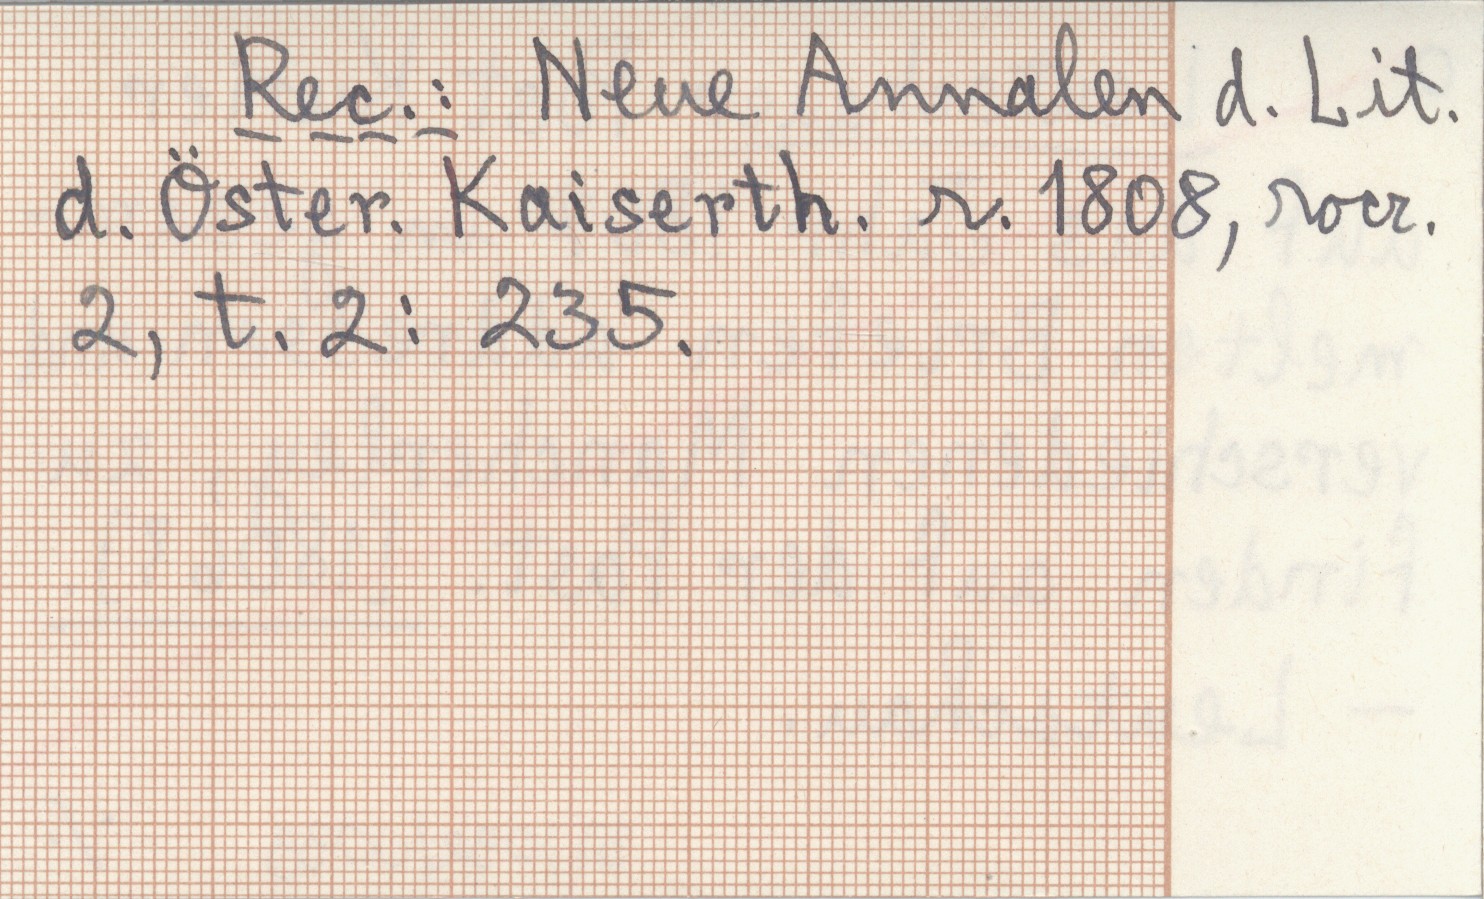 Rec.: Neue Annalen d. Lit.
d. Öster. Kaiserth. r. 1808, rocz.
2, t. 2: 235.